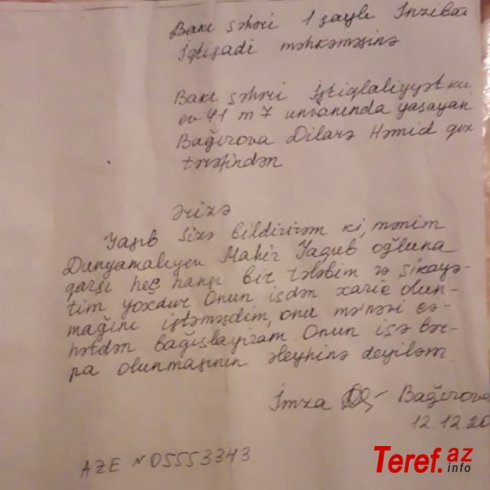 Bakı şəhəri 1 saylı İnziba
İqtisadi məhkəməsinə
Bakı şəhəri İstiqlaliyyət kü
ev 41 m 7 ünvanında yaşayan
Bağırova Dilarə Həmid qız
tərəfindən
Ərizə
Yazıb sizə bildirirəm ki, mənim
Dunyamalıyev Mahir Yaqub oğluna
qarşı heç hansı bir tələbim və şikayə-
tim yoxdur. Onun işdən xaric olun-
mağını istəməzdim, onu mənəvi cə-
hətdən bağışlayıram. Onun işə bər-
pa olunmasının əleyhinə deyiləm.
İmza Bağırova
12.12.20
AZE N 05553343
Teref.az
info